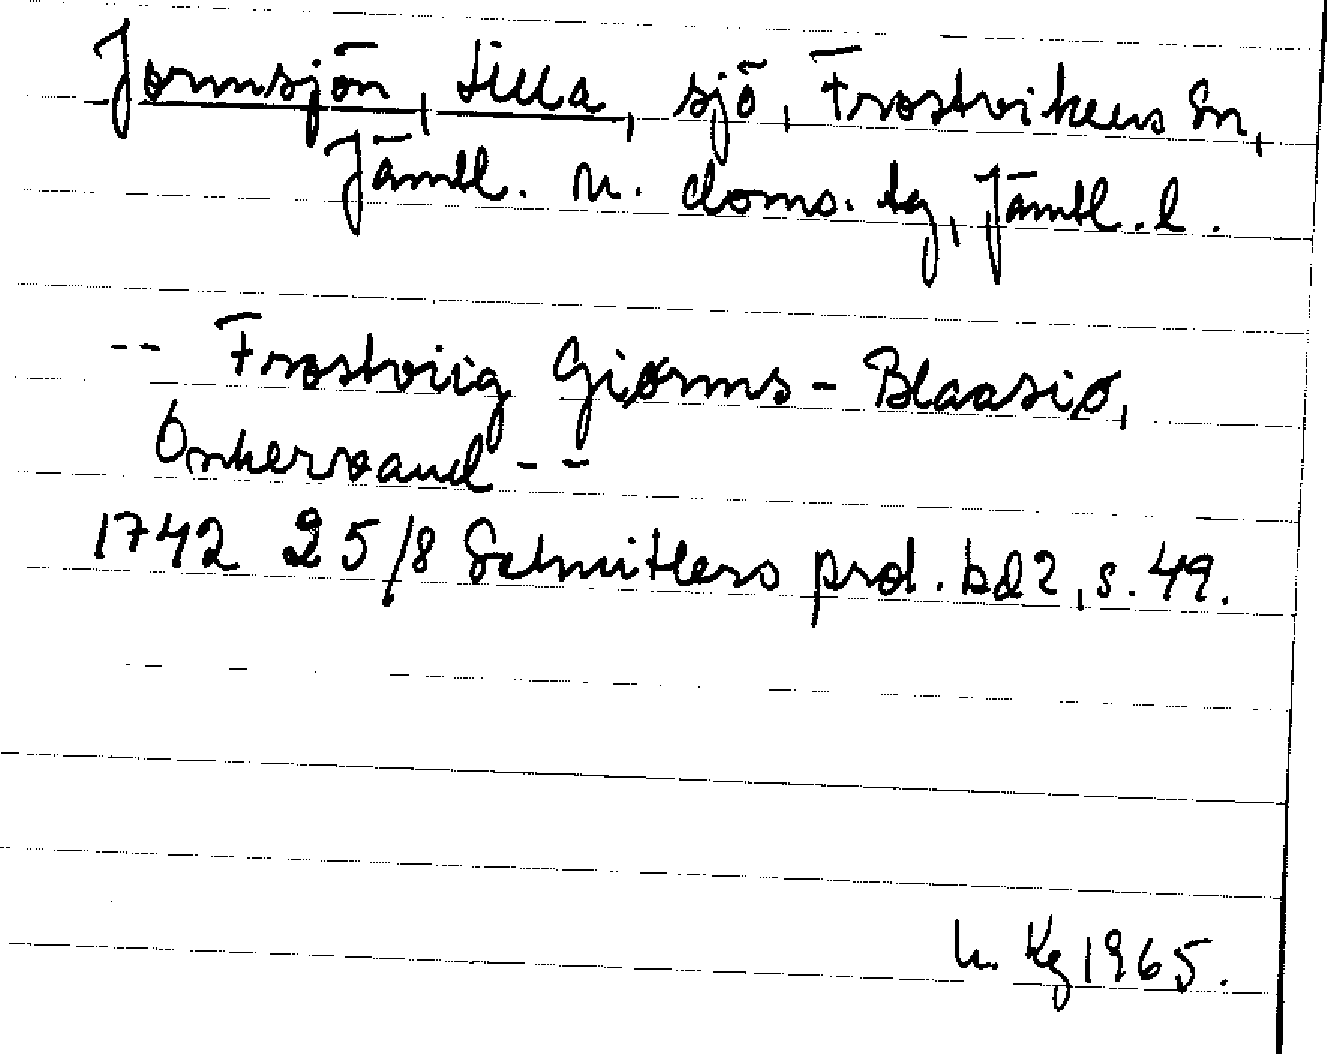 Jormsjön, Lilla, sjö, Frostvikens sn,
Jämtl. n. doms. tg, Jämtl. l.
-- Frostviig Giørms-Blaasiø,
Onkervaand --
1742 25/8 Schnitlers prot. bd 2, s. 49.
Kg 1965.